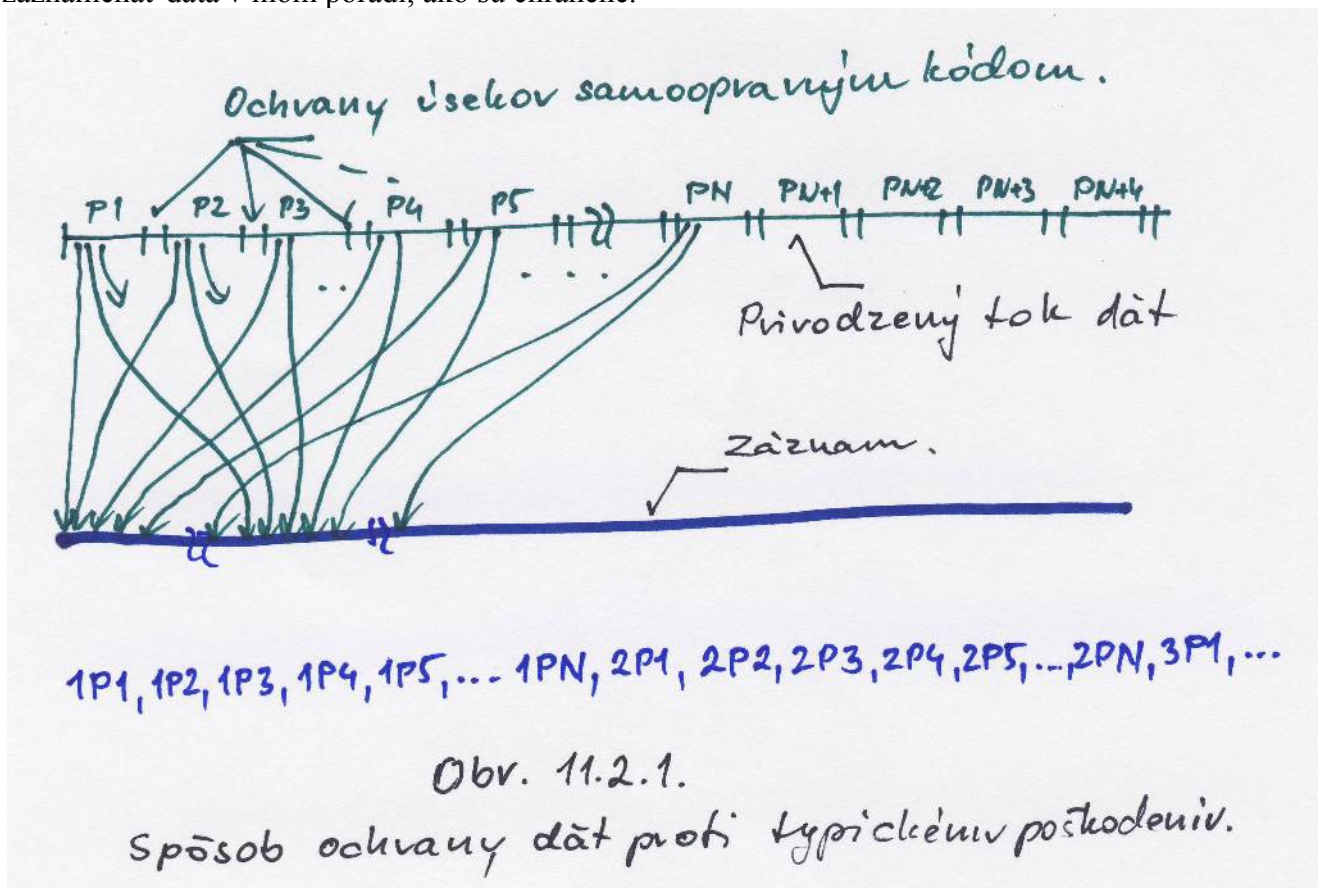 zaznamenať dáta v inom poradí, ako sú chránené.
Ochrany úsekov samoopravným kódom.
P1 P2 P3 P4 P5 PN PN+1 PN+2 PN+3 PN+4
Prirodzený tok dát
Záznam.
1P1, 1P2, 1P3, 1P4, 1P5, ... 1PN, 2P1, 2P2, 2P3, 2P4, 2P5, ..., 2PN, 3P1, ...
Obr. 11.2.1.
Spôsob ochrany dát proti typickému poškodeniu.